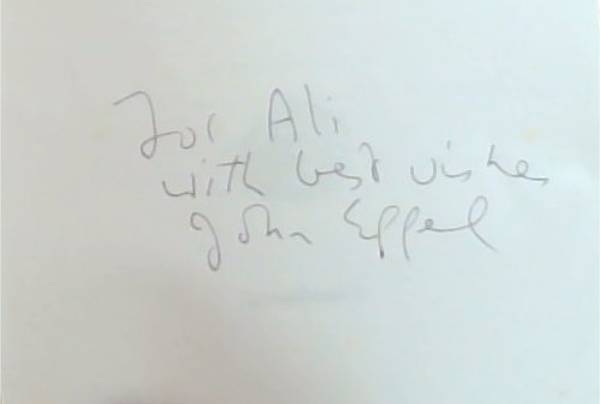 For Ali
with best wishes
John Eppel